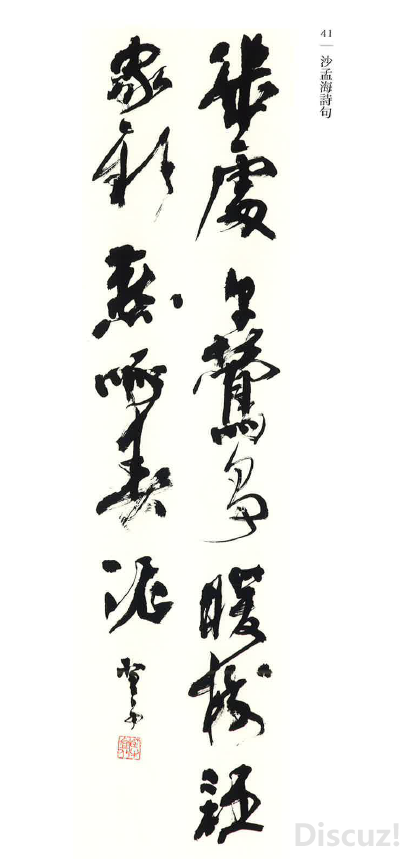 41 | 沙孟海詩句
幾處早鶯爭暖樹誰
家新燕啄春泥
Discuz!